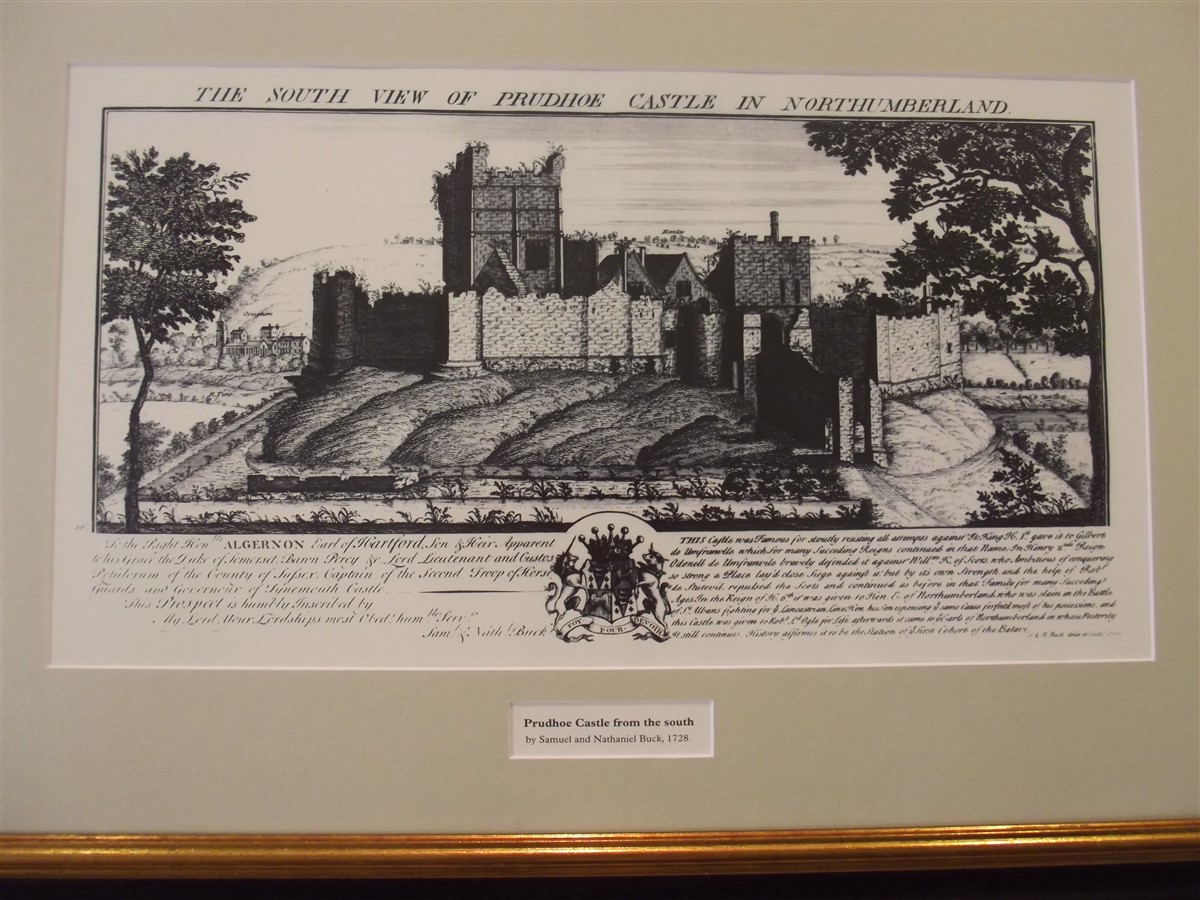 THE SOUTH VIEW OF PRUDHOE CASTLE IN NORTHUMBERLAND.
Horsley
To the Right Honble ALGERNON Earl of Hartford, Son & Heir Apparent
to his Grace the Duke of Somerset, Baron Percy &c Lord Lieutenant and Custos
Rotulorum of the County of Sussex, Captain of the Second Troop of Horse
Guards, and Governour of Tinemouth Castle
This PROSPECT is humbly Inscribed by
My Lord, Your Lordships most Obedt hum ble Servts
Saml & Nathl Buck
FOY POUR DEVOIR
THIS Castle was Famous for stoutly resisting all attempts against it. King H. 1st gave it to Gilbert
de Umfranville which for many Succeding Reigns continued in that Name. In Henry 2nd Reign
Odenell de Umfranvile bravely defended it against Willm K. of Scots, who Ambitious of conquering
so strong a Place lay'd close Siege against it: but by its own Strength and the help of Robt
de Stutevil repulsed the Scots and continued as before in that Family for many Succeding
Ages. In the Reign of H. 6th it was given to Hen: E. of Northumberland, who was slain in the Battle
of St Albans fighting for ye Lancastrian Line. Hen: his son espousing ye same Cause forfeited most of his possessions, and
this Castle was given to Robt Ld Ogle for Life. afterwards it came to ye Earls of Northumberland in whose Posterity
it still continues. History affirms it to be the Station of ye First Cohort of the Batavi.
Prudhoe Castle from the south
by Samuel and Nathaniel Buck, 1728.